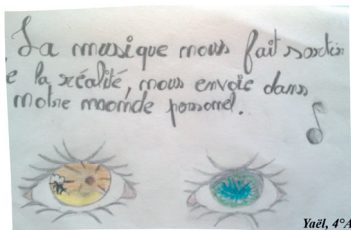 La musique nous fait sortir
de la réalité, nous envoie dans
notre monde personnel.
Yaël, 4°A